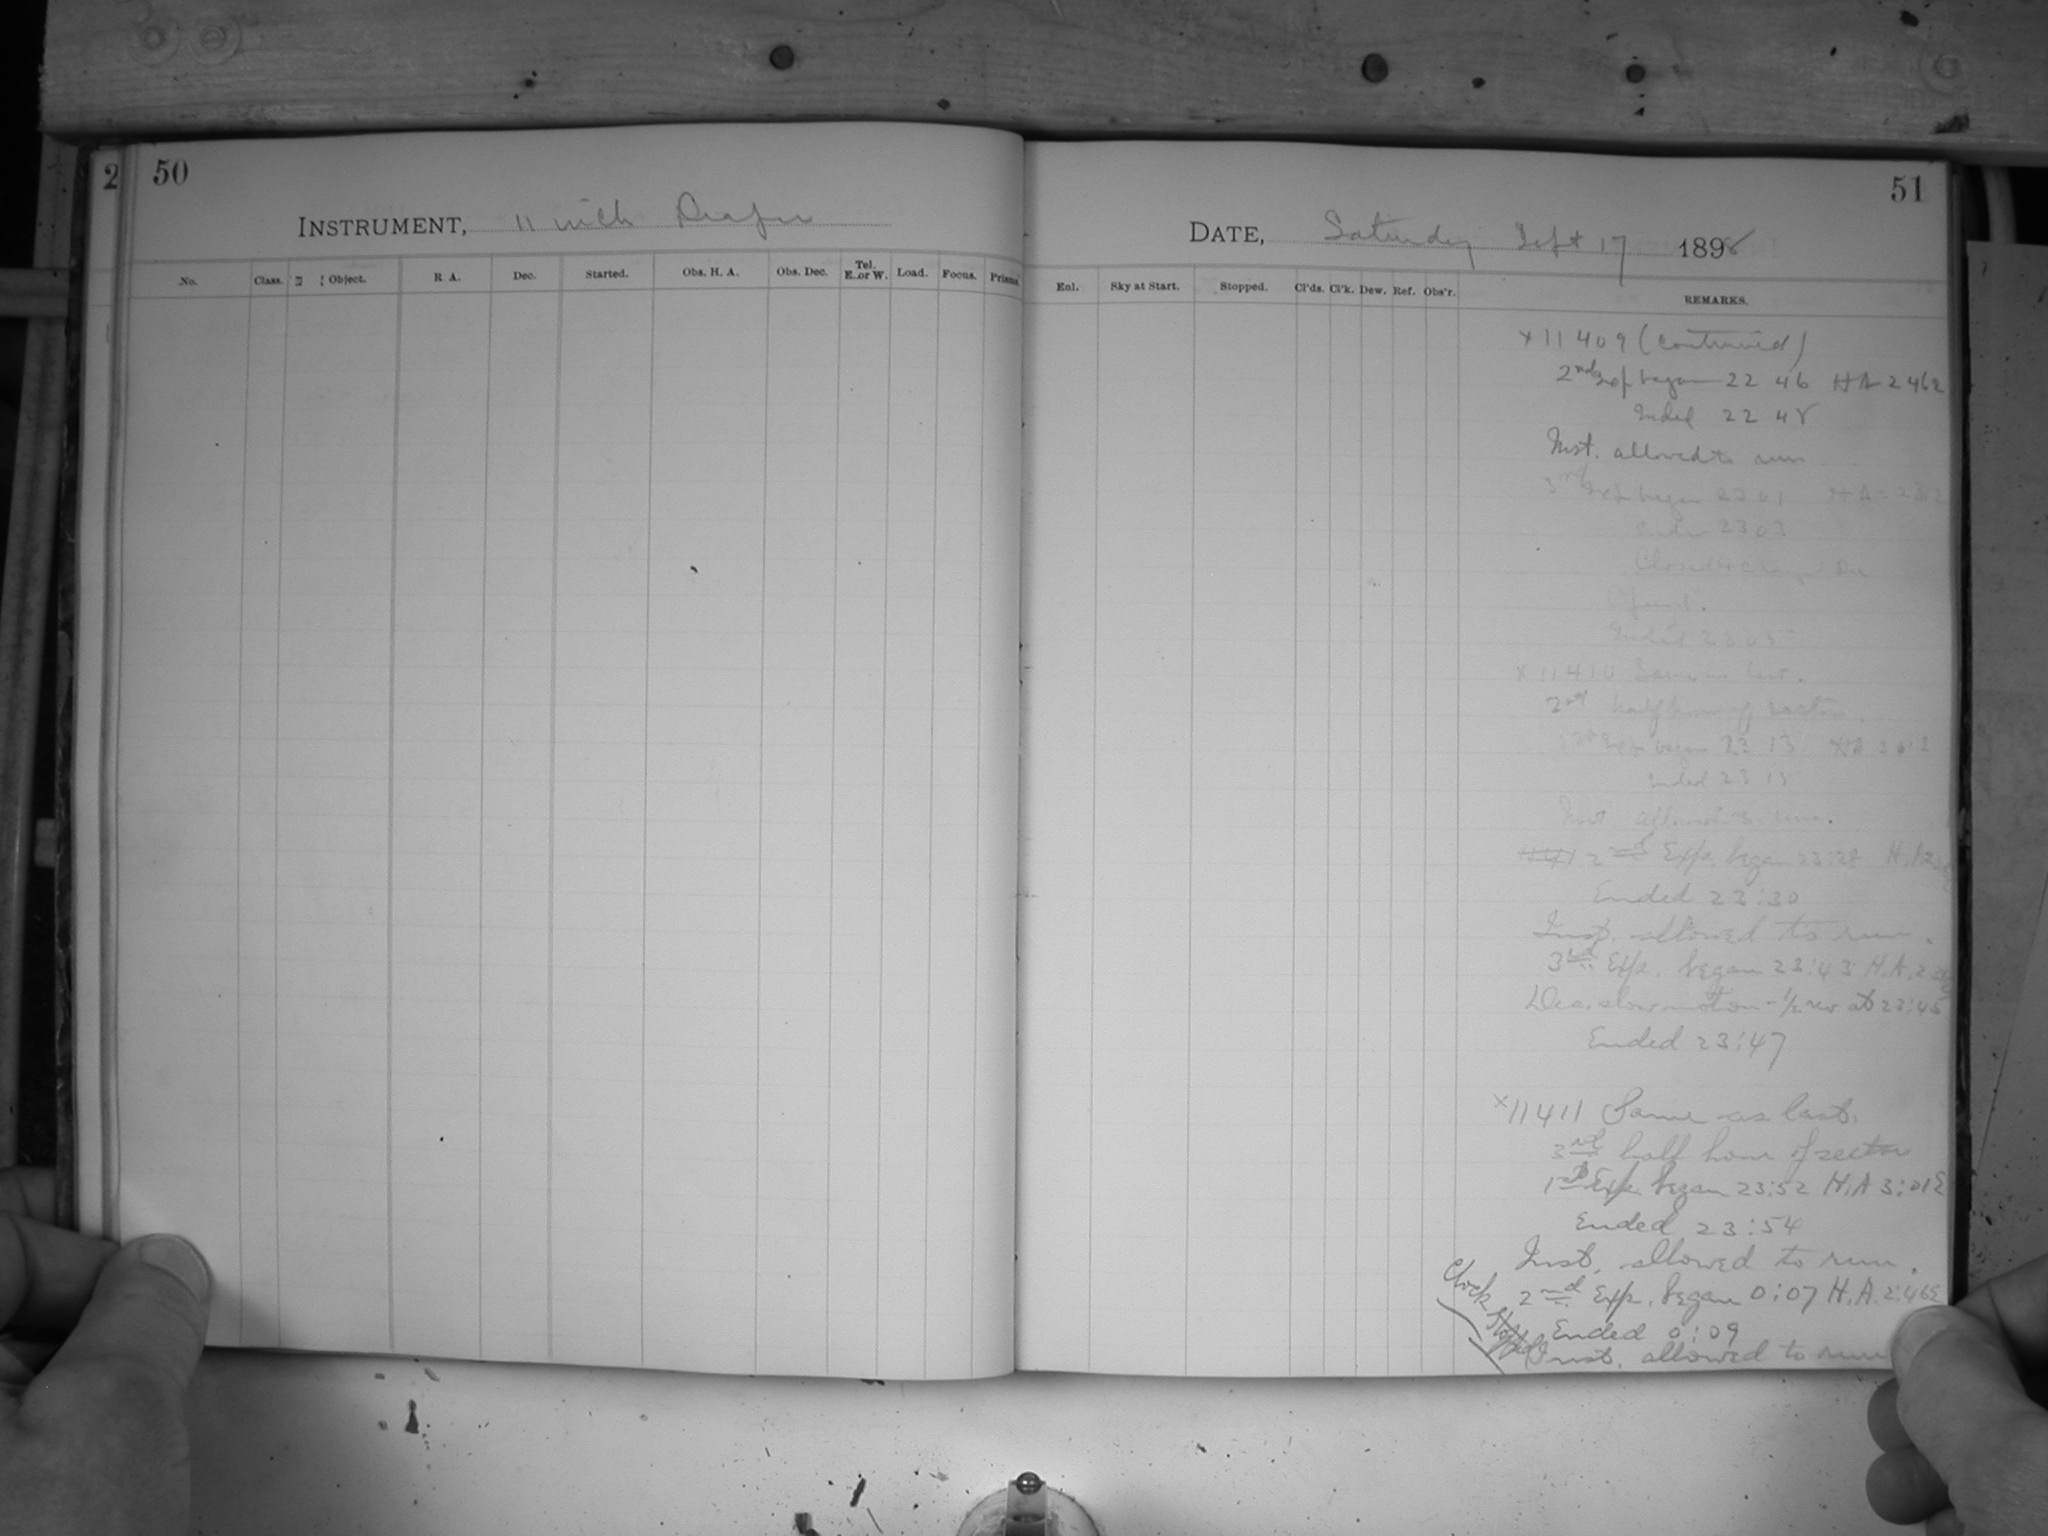 2 50
INSTRUMENT, 11 inch Draper
No. Class. Object. R. A. Dec. Started. Obs. H. A. Obs. Dec. Tel. E. or W. Load. Focus. Prisms
51
DATE, Saturday Sept 17 1898
Enl. Sky at Start. Stopped. Cl'ds. Cl'k. Dew. Ref. Obs'r. REMARKS.
x 11409 (continued)
2nd Exp. began 22 46 HA 2 46E
Ended 22 48
Inst. allowed to run
3rd Exp. began 23 01 HA =
Ended 23 03
Closed &
Ended 23 05
x 11410 Same as last.
2nd half hour of sector.
1st Exp. began 23 13 HA
Ended 23 15
Inst. allowed to run.
2nd Exp. began 23:28 H.A.
Ended 23:30
Inst. allowed to run.
3rd Exp. began 23:43 H.A.
Dec. slow motion - 1/2 rev at 23:45
Ended 23:47
x11411 Same as last.
3rd half hour of sector
1st Exp. began 23:52 H.A 3:01E
Ended 23:54
Inst. allowed to run.
2nd Exp. began 0:07 H.A. 2:46E
Ended 0:09
Clock stopped
Inst. allowed to run